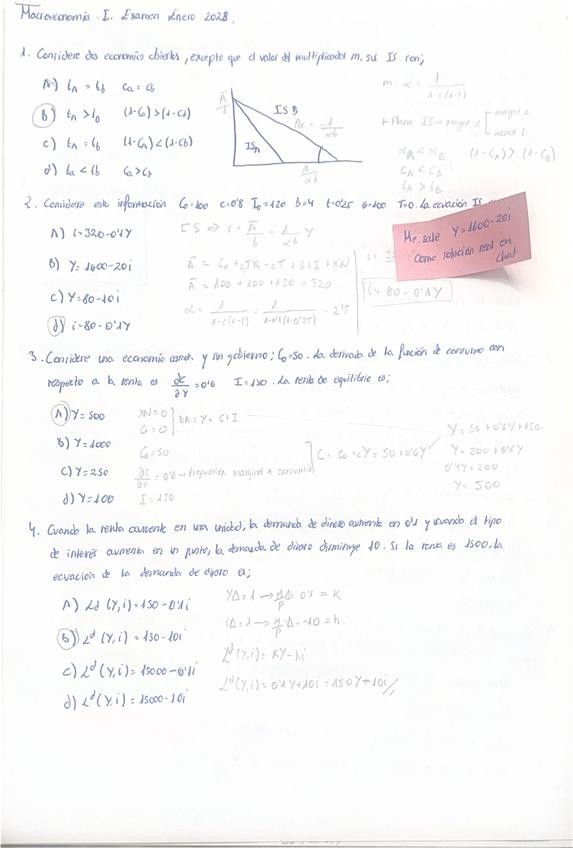 Macroeconomía I. Examen Enero 2028.
1. Considere dos economías abiertas, excepto que el valor del multiplicador m, sus IS son;
A) tA = tb ca = cb
B) tA > tb (1-CA) > (1-Cb)
C) tA = tb (1-CA) < (1-Cb)
d) ta < tb Ca > Cb
IS B
ISA
m = α = 1 / 1-c(1-t)
+ Plana IS → mayor α [ mayor c
menor t.
αA < αB (1-CA) > (1-CB)
CA < CB
tA > tB
2. Considere esta información C0=100 c=0'8 I0=120 b=4 t=0'25 G=100 T=0. La ecuación IS
A) i=320-0'1Y
B) Y=1600-20i
C) Y=80-10i
d) i=80-0'1Y
IS ⇒ i = Ā/b - 1/αb Y
Ā = C0 + cTR - cT + G + I + XN
Ā = 100 + 100 + 120 = 320
i = 80 - 0'1Y
Me sale Y=1600-20i
como solución real en
chat
3. Considere una economía cerrada y sin gobierno; C0=50. La derivada de la función de consumo con
respecto a la renta es ∂C/∂Y = 0'6 I=150. La renta de equilibrio es;
A) Y=500
B) Y=1000
C) Y=250
d) Y=100
XN=0
G=0 } DA = Y = C+I
C0=50
∂C/∂Y = 0'6 → Propensión marginal a consumir
I=150
C = C0 + cY = 50 + 0'6Y
Y = 50 + 0'6Y + 150.
Y = 200 + 0'6Y
0'4Y = 200
Y = 500
4. Cuando la renta aumenta en una unidad, la demanda de dinero aumenta en 0'1 y cuando el tipo
de interés aumenta en un punto, la demanda de dinero disminuye 10. Si la renta es 1500, la
ecuación de la demanda de dinero es;
A) Ld (Y,i) = 150-0'1i
B) Ld (Y,i) = 150-10i
C) Ld (Y,i) = 15000-0'1i
d) Ld (Y,i) = 15000-10i
YΔ=1 → M/P Δ = 0'1 = K
iΔ=1 → M/P Δ = -10 = h.
Ld(Y,i) = KY - hi
Ld(Y,i) = 0'1Y + 10i = 150Y - 10i //